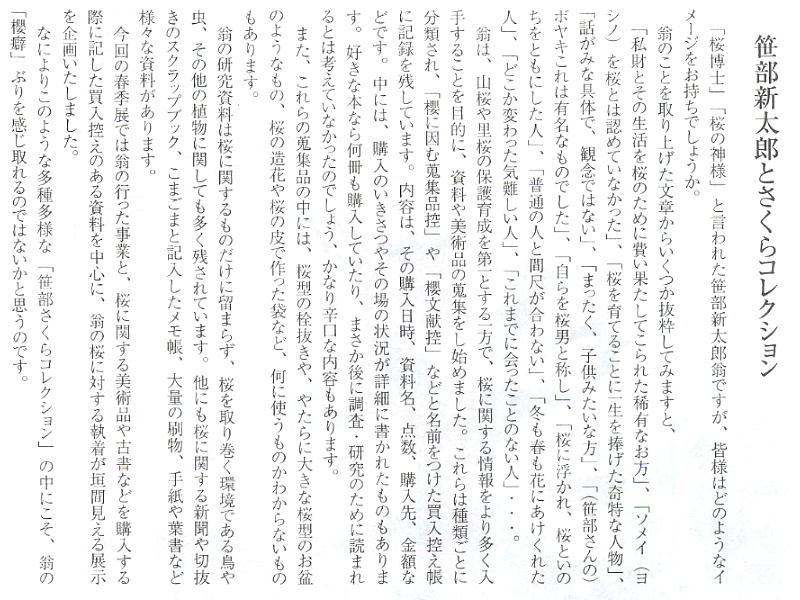 笹部新太郎とさくらコレクション
「桜博士」「桜の神様」と言われた笹部新太郎翁ですが、皆様はどのようなイ
メージをお持ちでしょうか。
翁のことを取り上げた文章からいくつか抜粋してみますと、
「私財とその生活を桜のために費い果たしてこられた稀有なお方」、「ソメイ（ヨ
シノ）を桜とは認めていなかった」、「桜を育てることに一生を捧げた奇特な人物」、
「話がみな具体で、観念ではない」、「まったく、子供みたいな方」、「（笹部さんの）
ボヤキこれは有名なものでした」、「自らを桜男と称し」、「桜に浮かれ、桜といの
ちをともにした人」、「普通の人と間尺が合わない」、「冬も春も花にあけくれた
人」、「どこか変わった気難しい人」、「これまでに会ったことのない人」・・・。
翁は、山桜や里桜の保護育成を第一とする一方で、桜に関する情報をより多く入
手することを目的に、資料や美術品の蒐集をし始めました。これらは種類ごとに
分類され、「櫻に因む蒐集品控」や「櫻文献控」などと名前をつけた買入控え帳
に記録を残しています。内容は、その購入日時、資料名、点数、購入先、金額な
どです。中には、購入のいきさつやその場の状況が詳細に書かれたものもありま
す。好きな本なら何冊も購入していたり、まさか後に調査・研究のために読まれ
るとは考えていなかったのでしょう、かなり辛口な内容もあります。
また、これらの蒐集品の中には、桜型の栓抜きや、やたらに大きな桜型のお盆
のようなもの、桜の造花や桜の皮で作った袋など、何に使うものかわからないもの
もあります。
翁の研究資料は桜に関するものだけに留まらず、桜を取り巻く環境である鳥や
虫、その他の植物に関しても多く残されています。他にも桜に関する新聞や切抜
きのスクラップブック、こまごまと記入したメモ帳、大量の刷物、手紙や葉書など
様々な資料があります。
今回の春季展では翁の行った事業と、桜に関する美術品や古書などを購入する
際に記した買入控えのある資料を中心に、翁の桜に対する執着が垣間見える展示
を企画いたしました。
なによりこのような多種多様な「笹部さくらコレクション」の中にこそ、翁の
「櫻癖」ぶりを感じ取れるのではないかと思うのです。